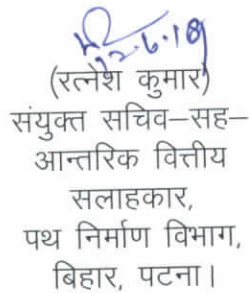 12.6.18
(रत्नेश कुमार)
संयुक्त सचिव–सह–
आन्तरिक वित्तीय
सलाहकार,
पथ निर्माण विभाग,
बिहार, पटना।